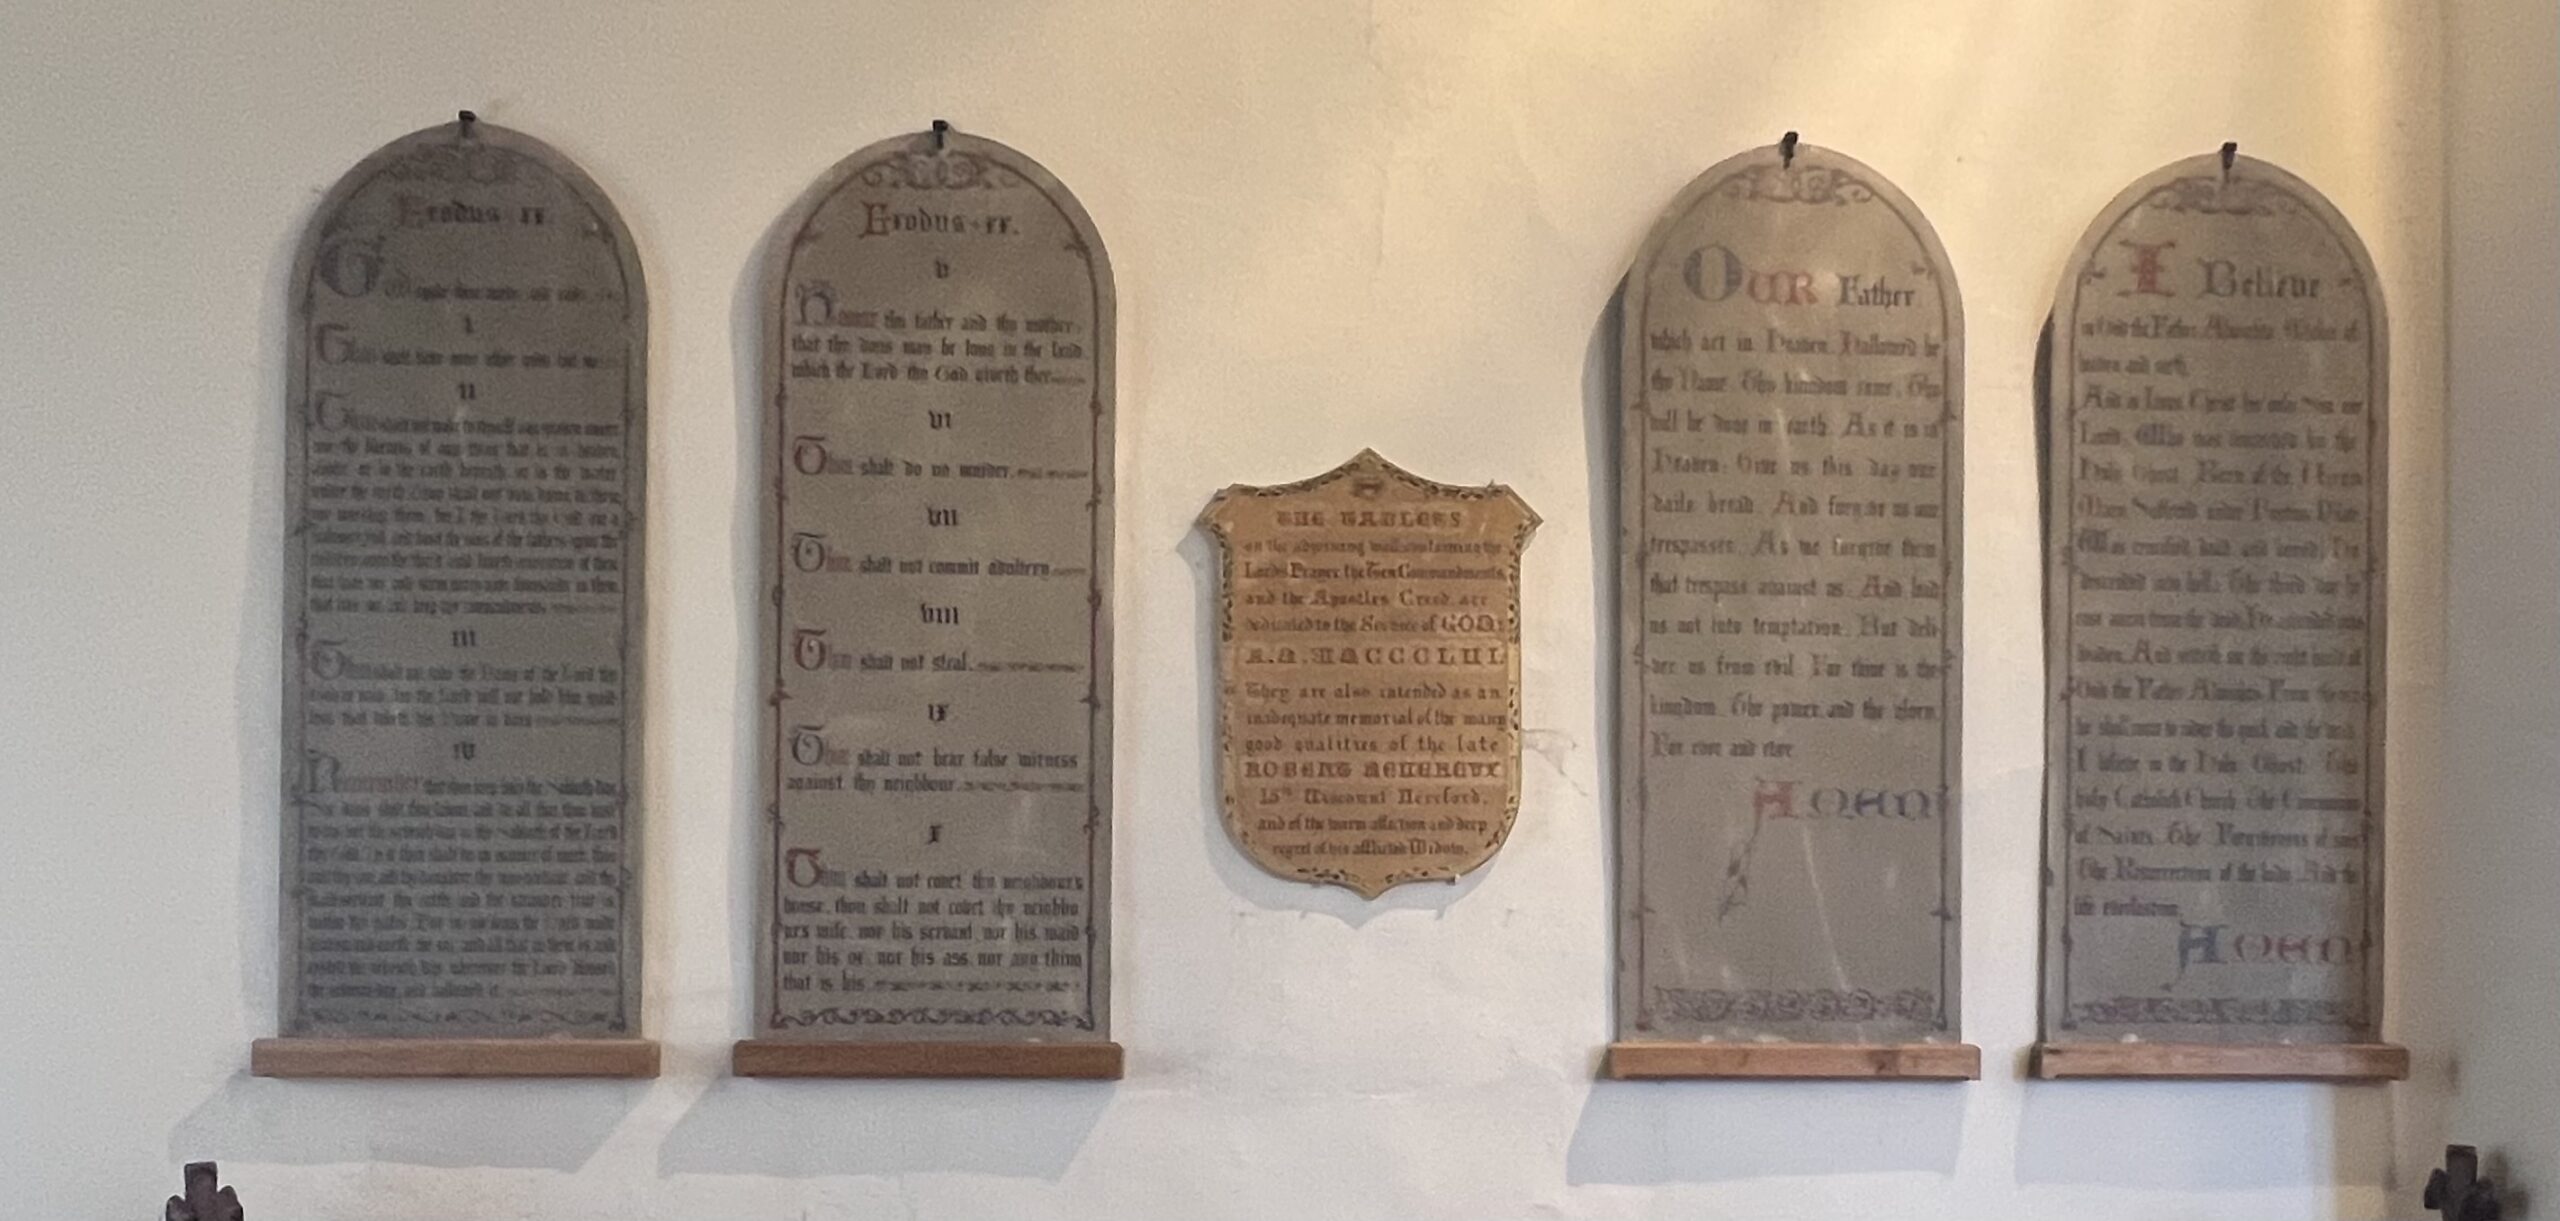 Exodus xx.
God spake these words and said
I
Thou shalt have none other gods but me
II
Thou shalt not make to thyself any graven image
nor the likeness of any thing that is in heaven
above, or in the earth beneath, or in the water
under the earth. Thou shalt not bow down to them
nor worship them, for I the Lord thy God am a
jealous God, and visit the sins of the fathers upon the
children unto the third and fourth generation of them
that hate me and shew mercy unto thousands in them
that love me and keep my commandments
III
Thou shalt not take the Name of the Lord thy
God in vain, for the Lord will not hold him guilt-
less that taketh his Name in vain
IV
Remember that thou keep holy the Sabbath day
Exodus · xx.
V
Honour thy father and thy mother,
that thy days may be long in the land
which the Lord thy God giveth thee
VI
Thou shalt do no murder.
VII
Thou shalt not commit adultery
VIII
Thou shalt not steal.
IX
Thou shalt not bear false witness
against thy neighbour.
X
Thou shalt not covet thy neighbours
house, thou shalt not covet thy neighbo
urs wife, nor his servant, nor his maid
nor his ox, nor his ass, nor any thing
that is his
THE TABLETS
on the adjoining wall containing the
Lord's Prayer, the Ten Commandments,
and the Apostles Creed, are
dedicated to the Service of GOD:
A.D. MDCCCLIII.
They are also intended as an
inadequate memorial of the many
good qualities of the late
ROBERT DEVEREUX
15th Viscount Hereford,
and of the warm affection and deep
regret of his afflicted Widow.
OUR Father
which art in Heaven. Hallowed be
thy Name. Thy kingdom come. Thy
will be done in earth. As it is in
Heaven. Give us this day our
daily bread. And forgive us our
trespasses. As we forgive them
that trespass against us. And lead
us not into temptation. But deli-
ver us from evil. For thine is the
kingdom. The power, and the glory.
For ever and ever
AMEN
I Believe
in God the Father Almighty Maker of
heaven and earth.
And in Jesus Christ his only Son our
Lord. Who was conceived by the
Holy Ghost. Born of the Virgin
Mary. Suffered under Pontius Pilate.
Was crucified, dead and buried, He
descended into hell. The third day he
rose again from the dead, He ascended into
heaven. And sitteth on the right hand of
God the Father Almighty. From thence
he shall come to judge the quick and the dead.
I believe in the Holy Ghost. The
holy Catholick Church. The Communion
of Saints. The Forgiveness of sins
The Resurrection of the body. And the
life everlasting.
AMEN